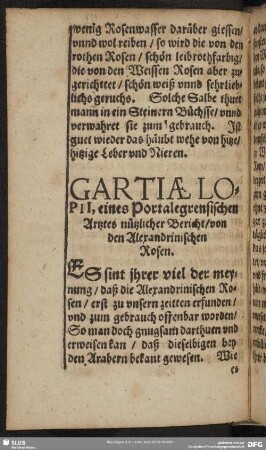 wenig Rosenwasser darüber giessen/
vnnd wol reiben / so wird die von den
rothen Rosen / schön leibrothfarbig/
die von den Weissen Rosen aber zu
gerichtet / schön weiß vnnd sehrlieb-
lichs geruchs. Solche Salbe thuet
mann in ein Steinern Büchsse/ vnnd
verwahret sie zum gebrauch. Ist
guet wieder das häubt wehe von hitze/
hitzige Leber vnd Nieren.
GARTIÆ LO-
PII, eines Portalegrensischen
Artztes nützlicher Bericht/von
den Alexandrinischen
Rosen.
ES sint jhrer viel der mey-
nung / daß die Alexandrinischen Ro-
sen / erst zu vnsern zeitten erfunden/
vnd zum gebrauch offenbar worden/
So man doch gnugsam darthuen vnd
erweisen kan / daß dieselbigen bey
den Arabern bekant gewesen. Wie
es
SLUB
DFG